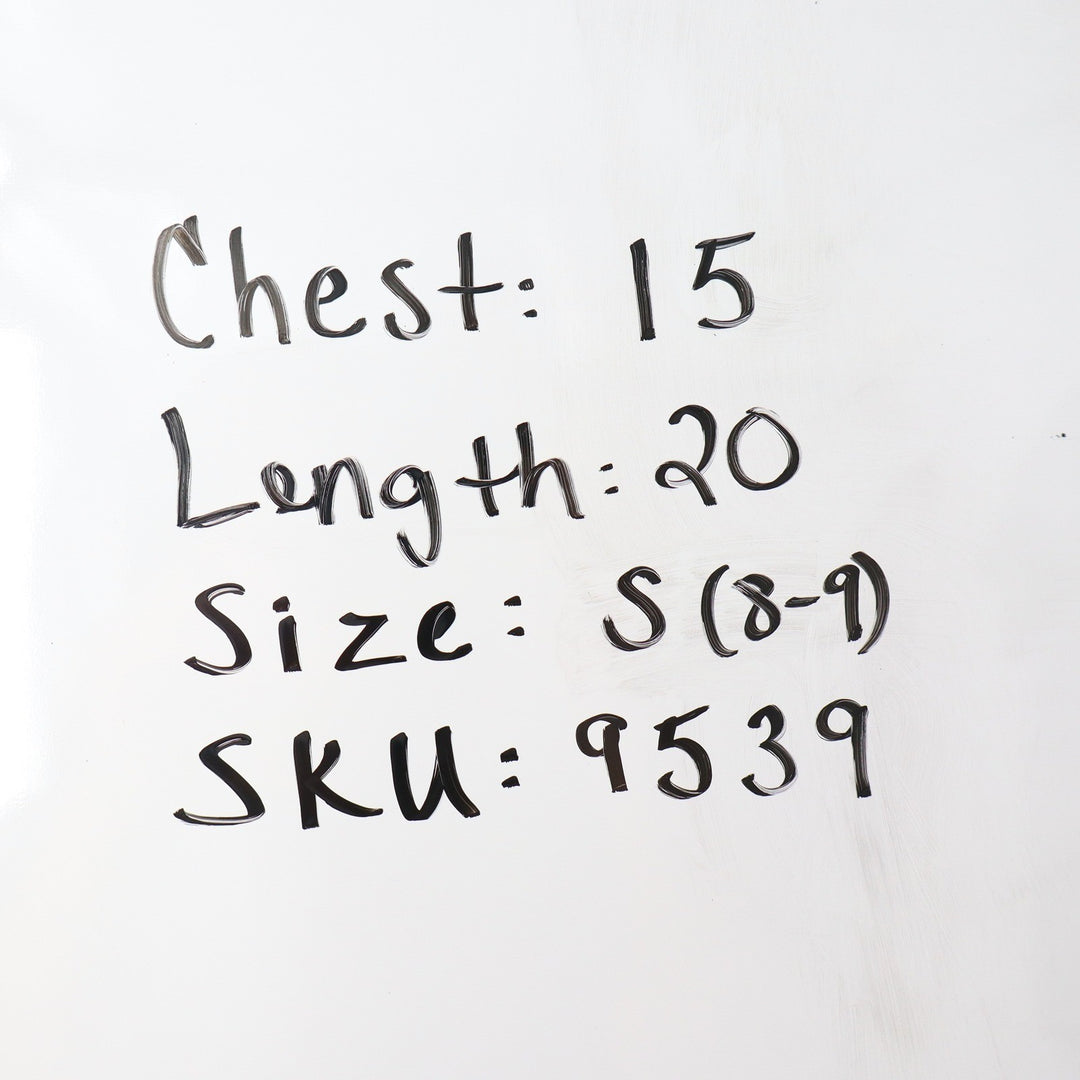 Chest: 15
Length: 20
Size: S (8-9)
SKU: 9539